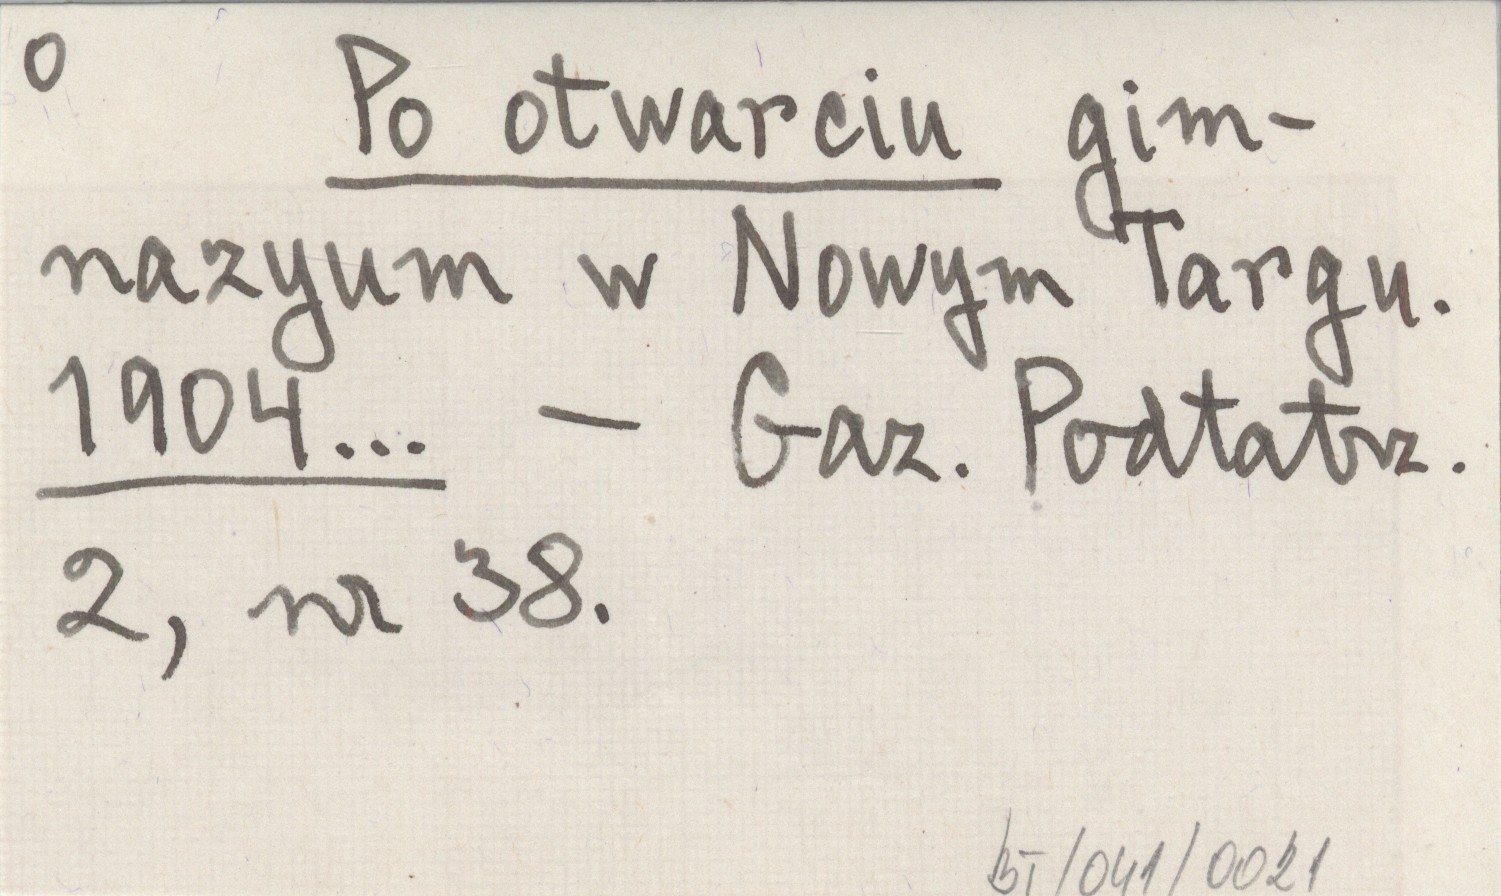 o Po otwarciu gim-
nazyum w Nowym Targu.
1904... – Gaz. Podtatrz.
2, nr 38.
BT/041/0021